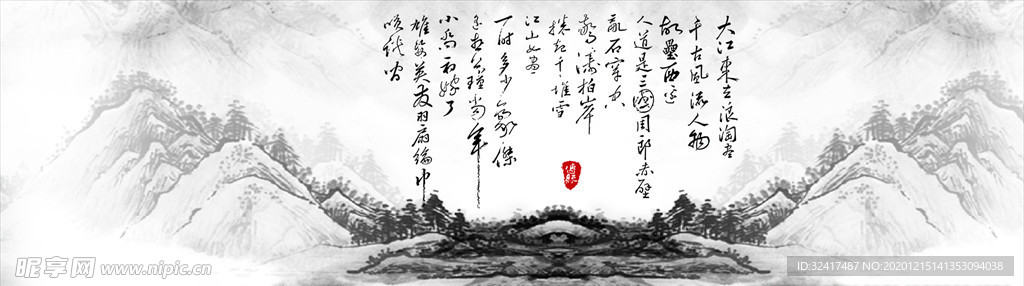 大江東去浪淘尽
千古風流人物
故壘西边
人道是三國周郎赤壁
亂石穿空
驚濤拍岸
捲起千堆雪
江山如畫
一时多少豪傑
遙想公瑾當年
小喬初嫁了
雄姿英发羽扇綸巾
談笑間
昵享网 www.nipic.cn
ID:32417487 NO:20201215141353094038